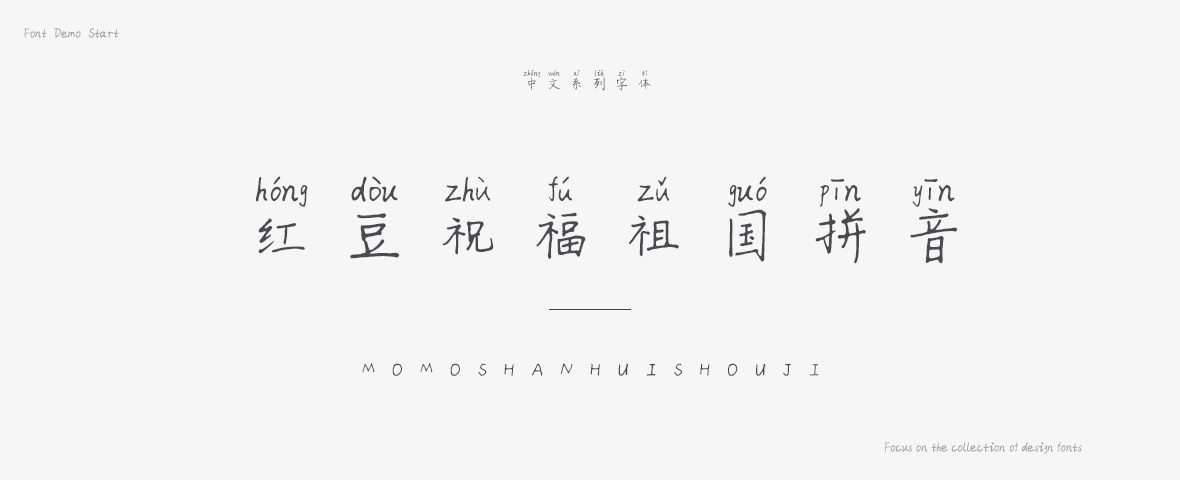 Font Demo Start
zhōng wén xì liè zì tǐ
中文系列字体
hóng dòu zhù fú zǔ guó pīn yīn
红豆祝福祖国拼音
MOMOSHANHUISHOUJI
Focus on the collection of design fonts